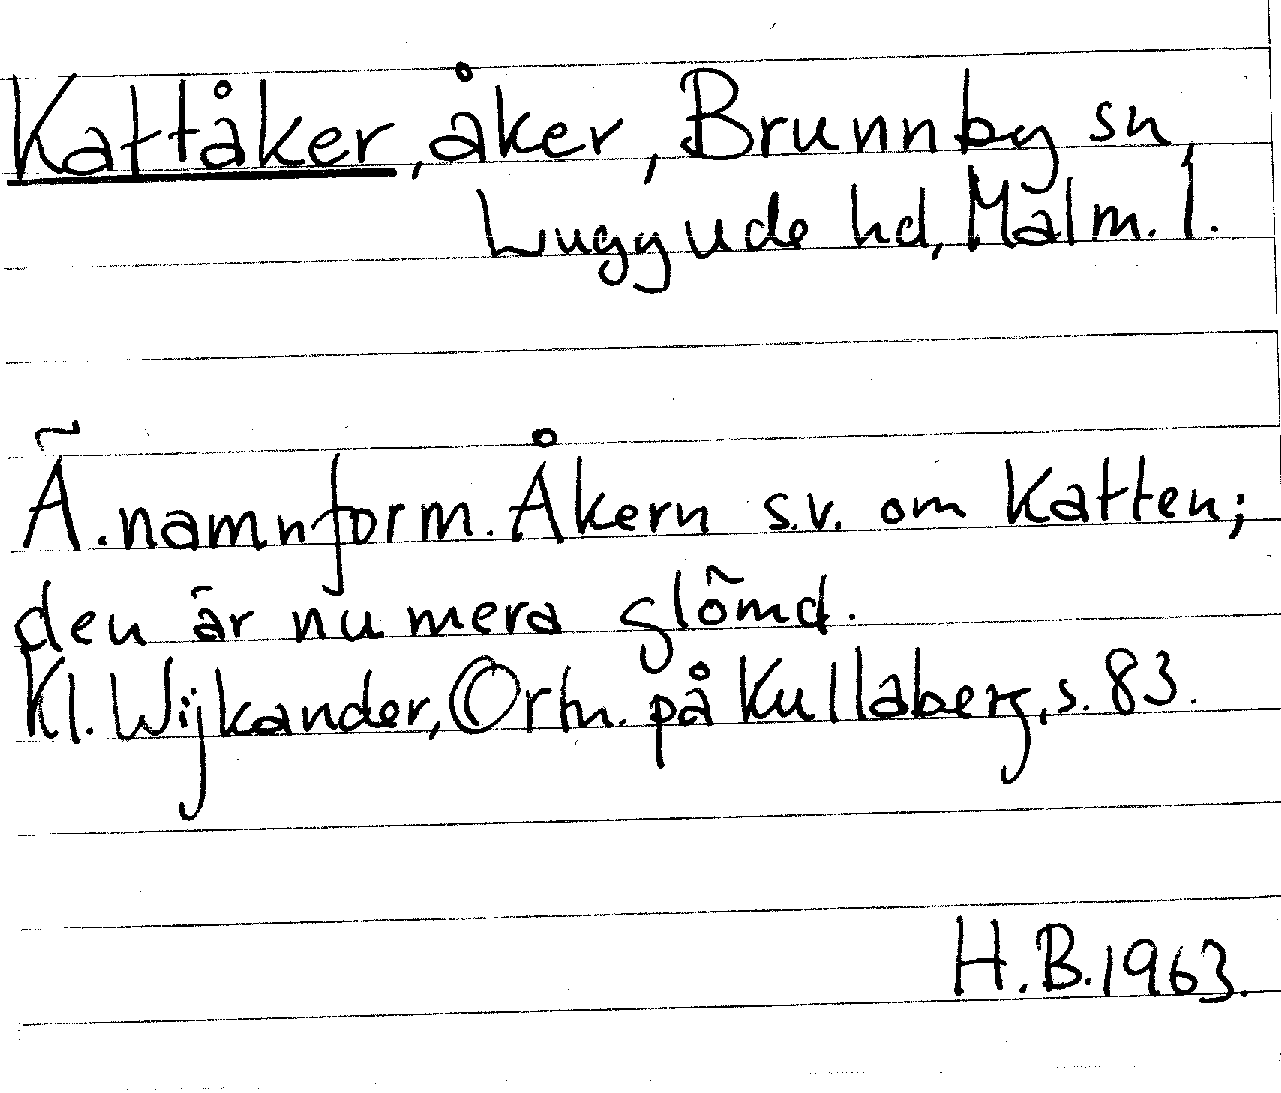 Kattåker, åker, Brunnby sn,
Luggude hd, Malm. l.
Ä. namnform. Åkern s.v. om Katten;
den är nu mera glömd.
Kl. Wijkander, Ortn. på Kullaberg, s. 83.
H.B. 1963.